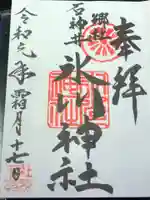 奉拝
郷社
石神井
氷川神社
令和元年霜月十七日